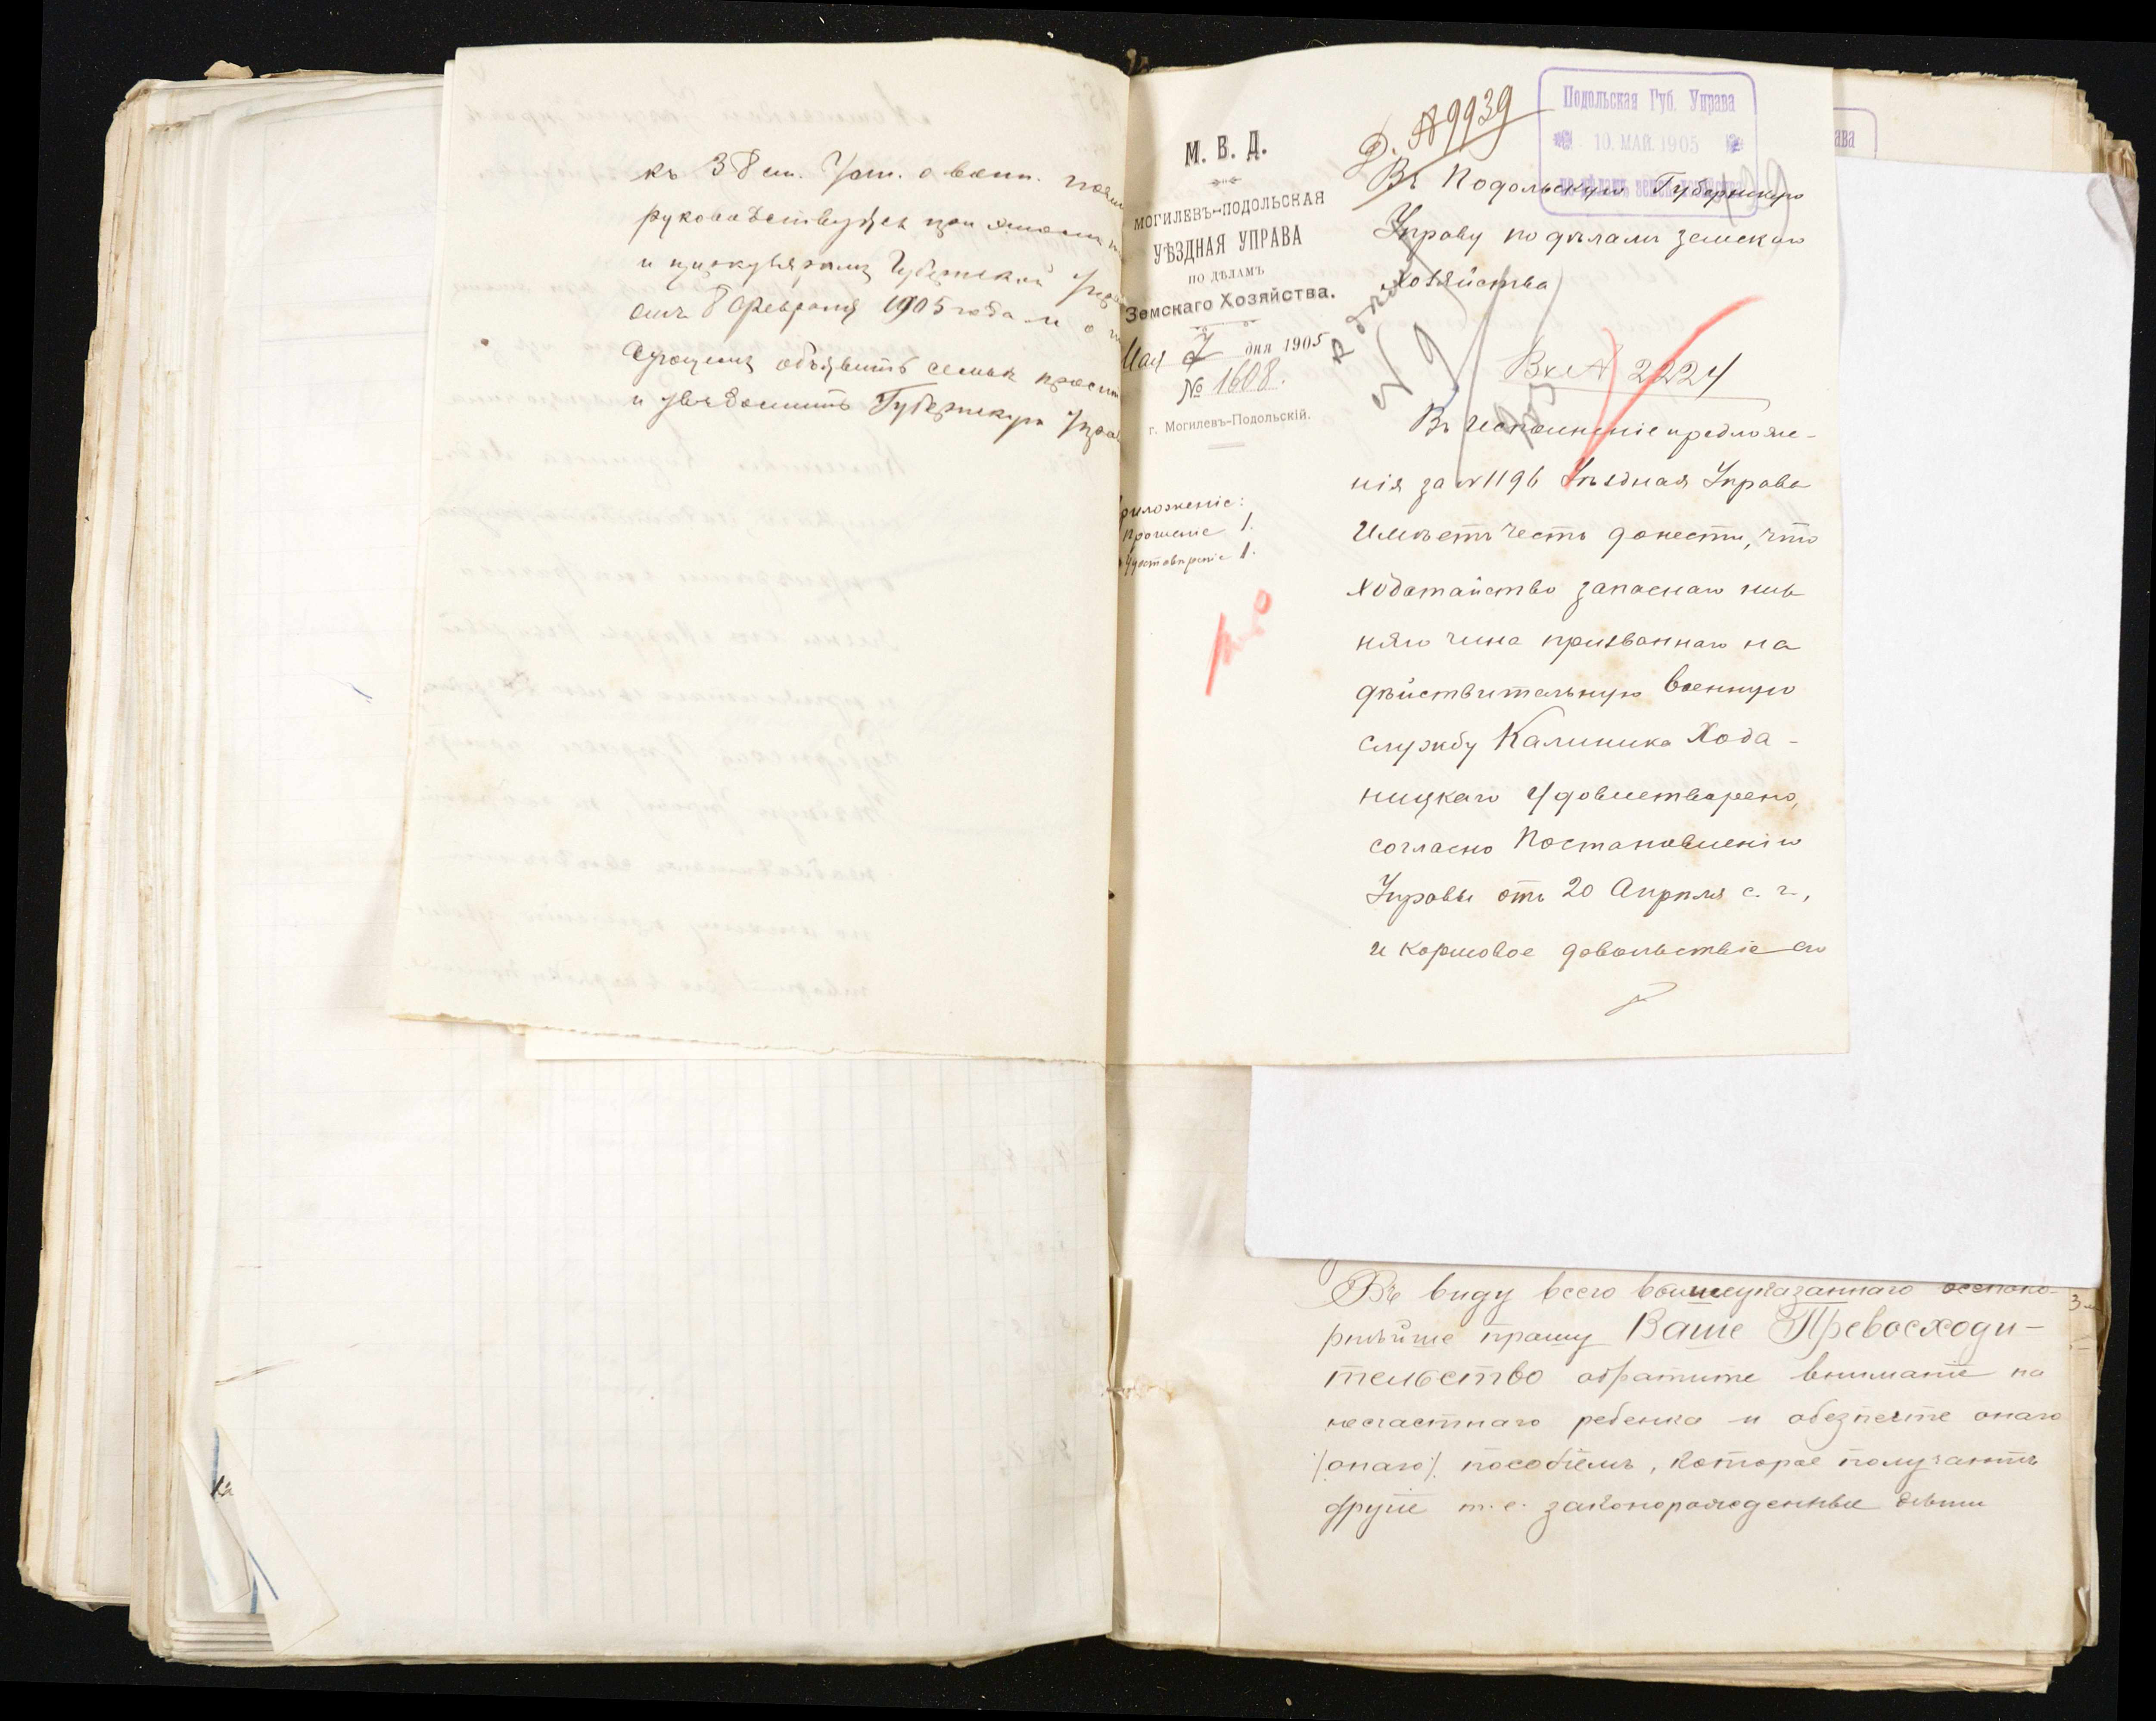 къ 38 ст. Уст. о воин.
руководствуясь при этомъ
и циркуляромъ Губернской
отъ 8 Февраля 1905 года и о
объявить семьѣ
и увѣдомить Губернскую
М. В. Д.
МОГИЛЕВЪ-ПОДОЛЬСКАЯ
УѢЗДНАЯ УПРАВА
ПО ДѢЛАМЪ
Земскаго Хозяйства.
Мая 7 дня 1905
№ 1608.
г. Могилевъ-Подольскій.
риложеніе:
прошеніе 1.
Удостовѣреніе 1.
Д. № 9939
Подольская Губ. Управа
10. МАЯ. 1905
ава
Въ Подольскую Губернскую
Управу по дѣламъ земскаго
Хозяйства
Вх № 2224
Во исполненіе предложе-
нія за № 1196 Уѣздная Управа
имѣетъ честь донести, что
ходатайство запаснаго ниж
няго чина призваннаго на
дѣйствительную военную
службу Калиника Хода-
ницкаго удовлетворено,
согласно Постановленію
Управы отъ 20 Апрѣля с. г.,
и кормовое довольствіе его
Въ виду всего вышеуказаннаго всепоко-
рнѣйше прошу Ваше Превосходи-
тельство обратите вниманіе на
несчастнаго ребенка и обезпечте онаго
/онаго/ пособіемъ, которое получаютъ
другіе т. е. законорожденные дѣти